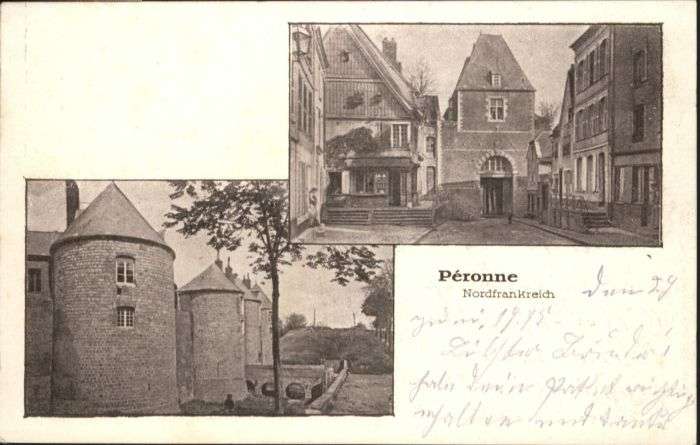 Péronne
Nordfrankreich
den 29
1915.
Lieber Bruder!
habe dein Paket richtig
erhalten und danke